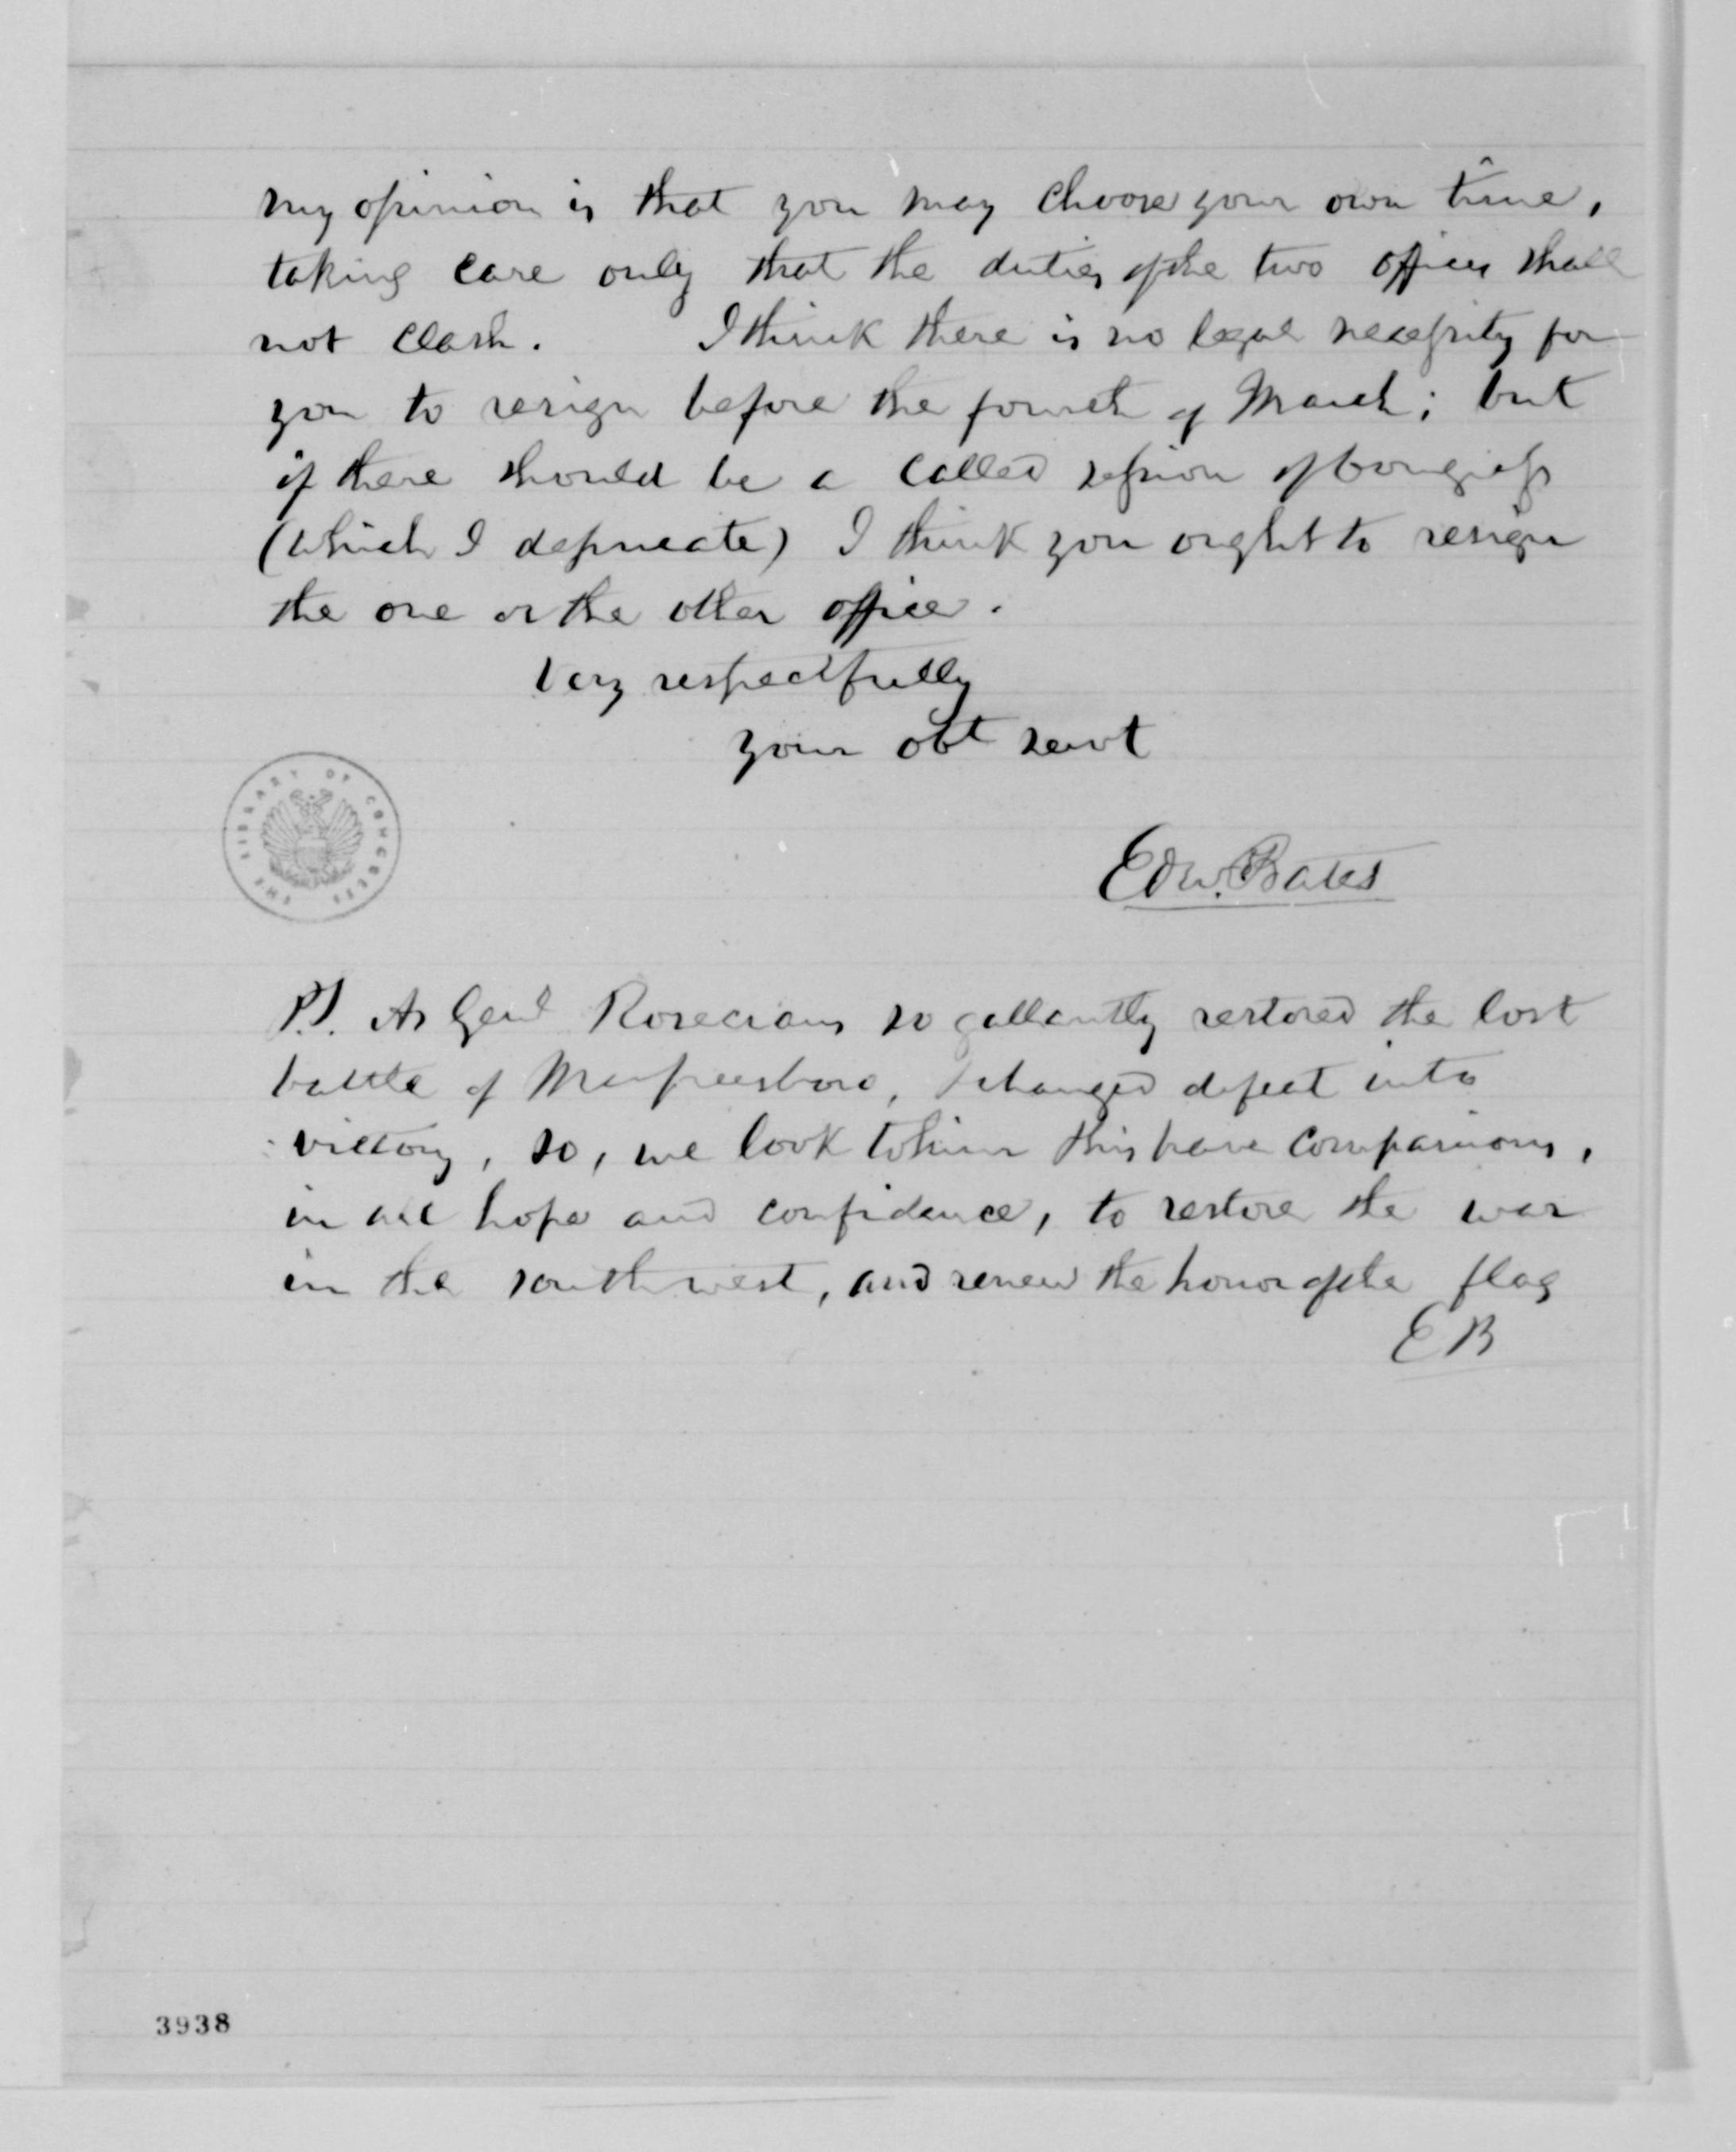 my opinion is that you may choose your own time,
taking care only that the duties of the two offices shall
not clash. I think there is no legal necessity for
you to resign before the fourth of March; but
if there should be a called session of Congress
(which I deprecate) I think you ought to resign
the one or the other office.
Very respectfully
your obt servt
Edw. Bates
THE LIBRARY OF CONGRESS
P.S. As Genl Rosecrans so gallantly restored the lost
battle of Murfreesboro, & changed defeat into
victory, so, we look to him & his brave companions,
in all hope and confidence, to restore the war
in the south west, and renew the honor of the flag
EB
3938